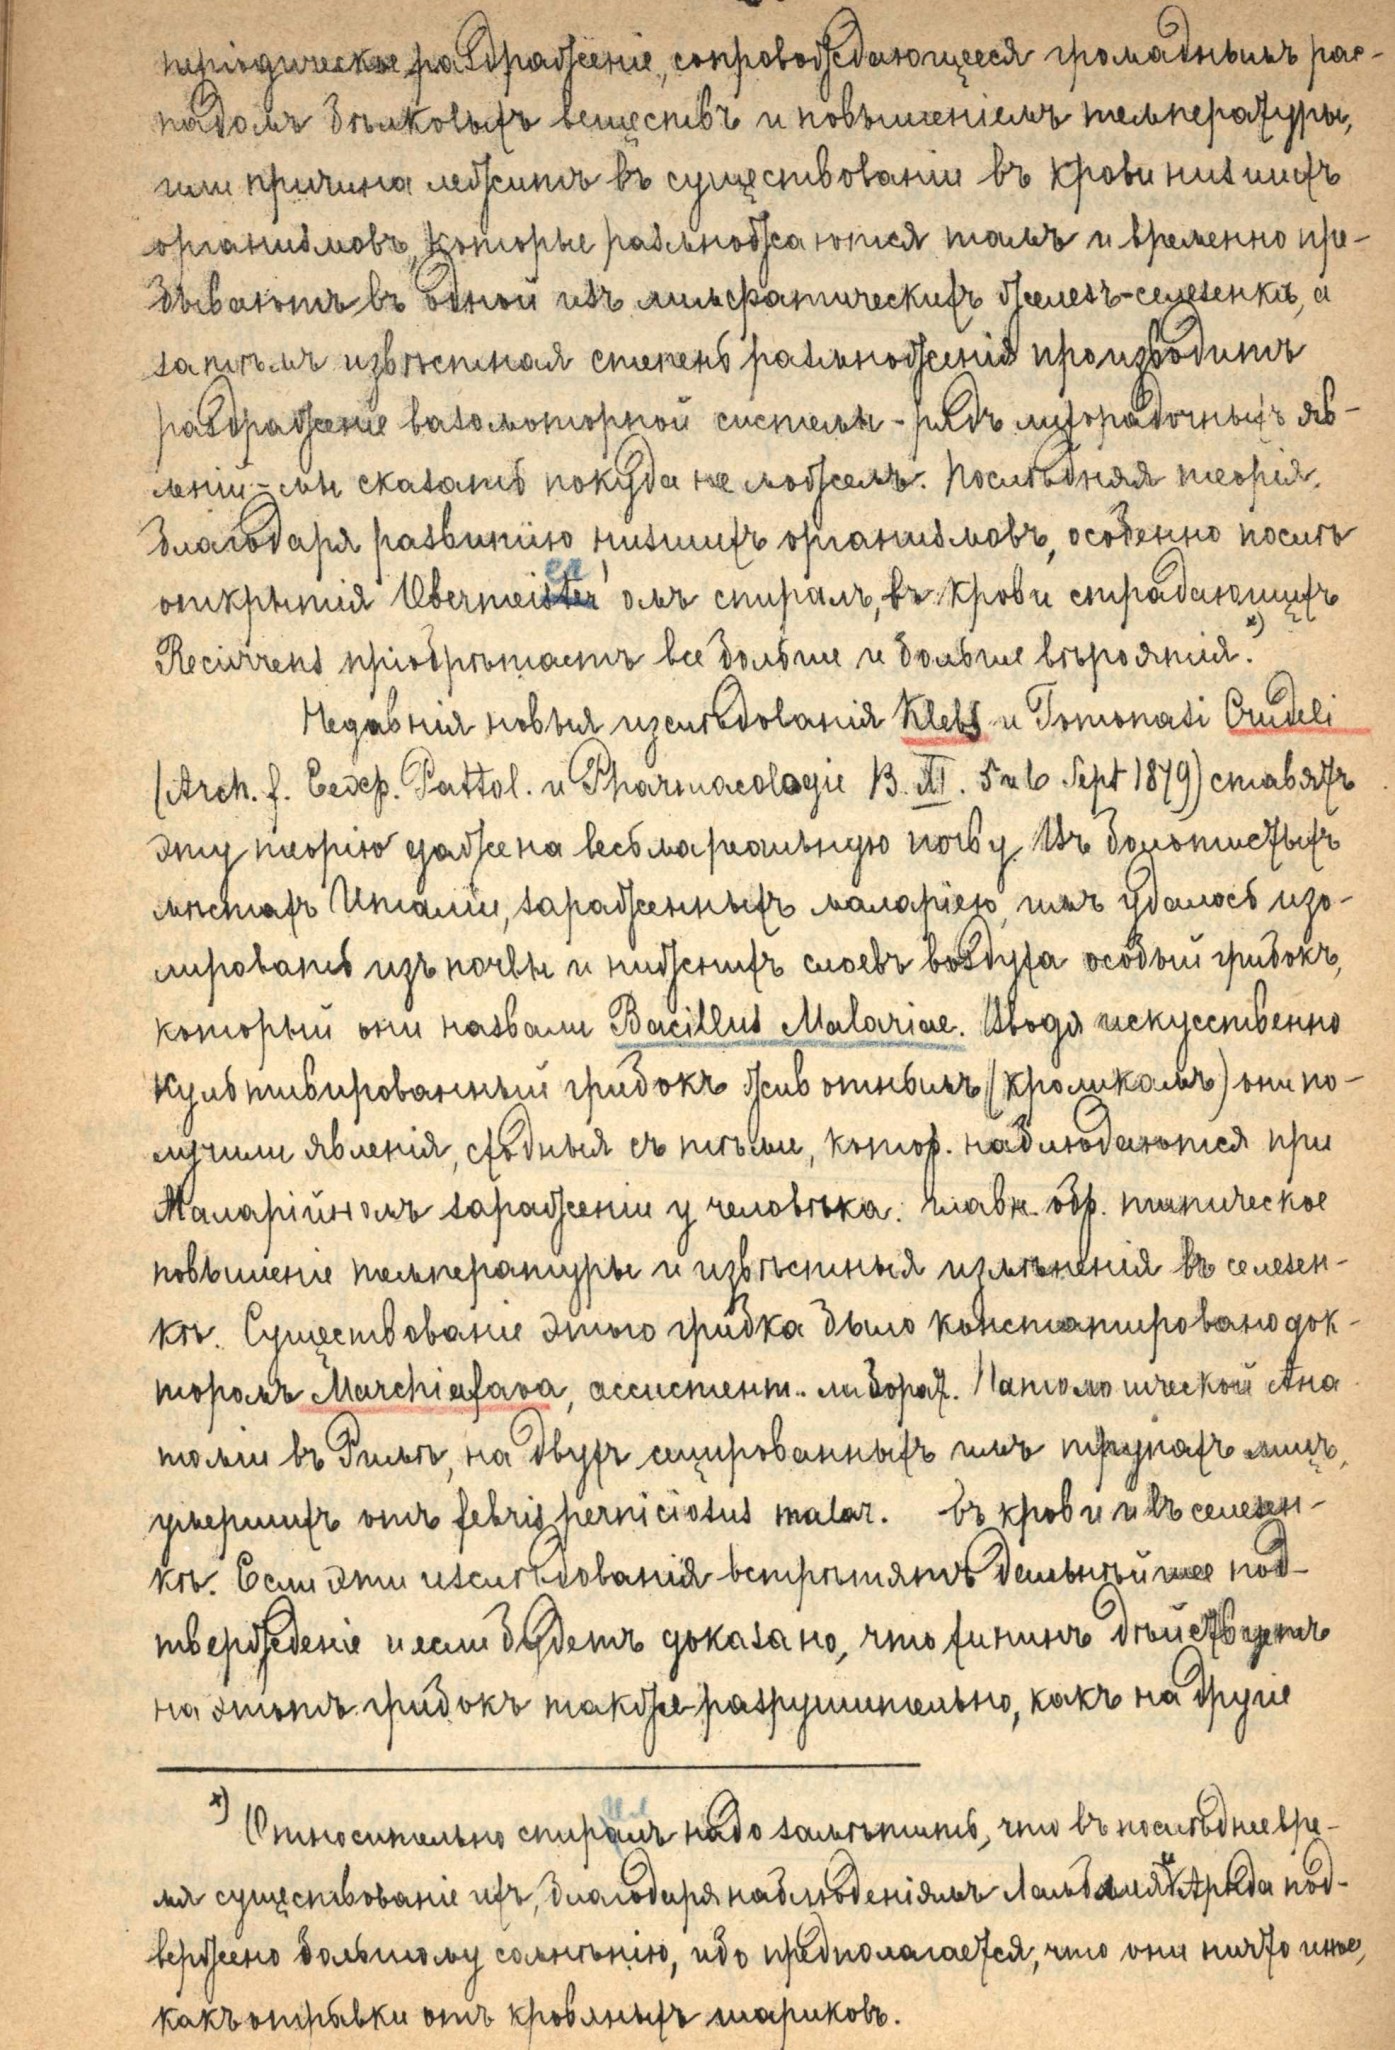 періодическое раздраженіе, сопровождающееся громаднымъ рас-
падомъ бѣлковыхъ веществъ и повышеніемъ температуры,
или причина лежитъ въ существованіи въ крови низшихъ
организмовъ, которые размножаются тамъ и временно пре-
бываютъ въ одной изъ лимфатическихъ железъ-селезенкѣ, а
затѣмъ извѣстная степень размноженія производитъ
раздраженіе вазомоторной системы - рядъ лихорадочныхъ яв-
леній - мы сказать покуда не можемъ. Послѣдняя теорія,
благодаря развитію низшихъ организмовъ, особенно послѣ
открытія Obermeier'омъ спирал, въ крови страдающихъ
Recurrens пріобрѣтаетъ все больше и больше вѣроятія. х)
Недавнія новыя изслѣдованія Klebs и Tomonasi Crudeli
(Arch. f. Eexp. Pattol. и Pharmacologie B. XI. 5 и 6 Sept 1879) ставятъ
эту теорію даже на весьма реальную почву. Въ болотистыхъ
мѣстахъ Италіи, зараженныхъ маларіею, имъ удалось изо-
лировать изъ почвы и нижнихъ слоевъ воздуха особый грибокъ,
который они назвали Bacillus Malariae. Вводя искусственно
культивированный грибокъ животнымъ (кроликамъ) они по-
лучили явленія, сходныя съ тѣми, котор. наблюдаются при
Маларійномъ зараженіи у человѣка: главн. обр. типическое
повышеніе температуры и извѣстныя измѣненія въ селезен-
кѣ. Существованіе этого грибка было констатировано док-
торомъ Marchiafava, ассистент. лаборат. Патологической Ана
томіи въ Римѣ, на двухъ сецированныхъ имъ трупахъ лицъ,
умершихъ отъ febris perniciosus malar. въ крови и въ селезен-
кѣ. Если эти изслѣдованія встрѣтятъ дальнѣйшее под-
твержденіе и если будетъ доказано, что хининъ дѣйствуетъ
на этотъ грибокъ также разрушительно, какъ на другіе
х) Относительно спирилъ надо замѣтить, что въ послѣднее вре-
мя существованіе ихъ, благодаря наблюденіямъ и Арнда под-
вержено большому сомнѣнію, ибо предполагается, что они ничто иное,
какъ отрывки отъ кровяныхъ шариковъ.